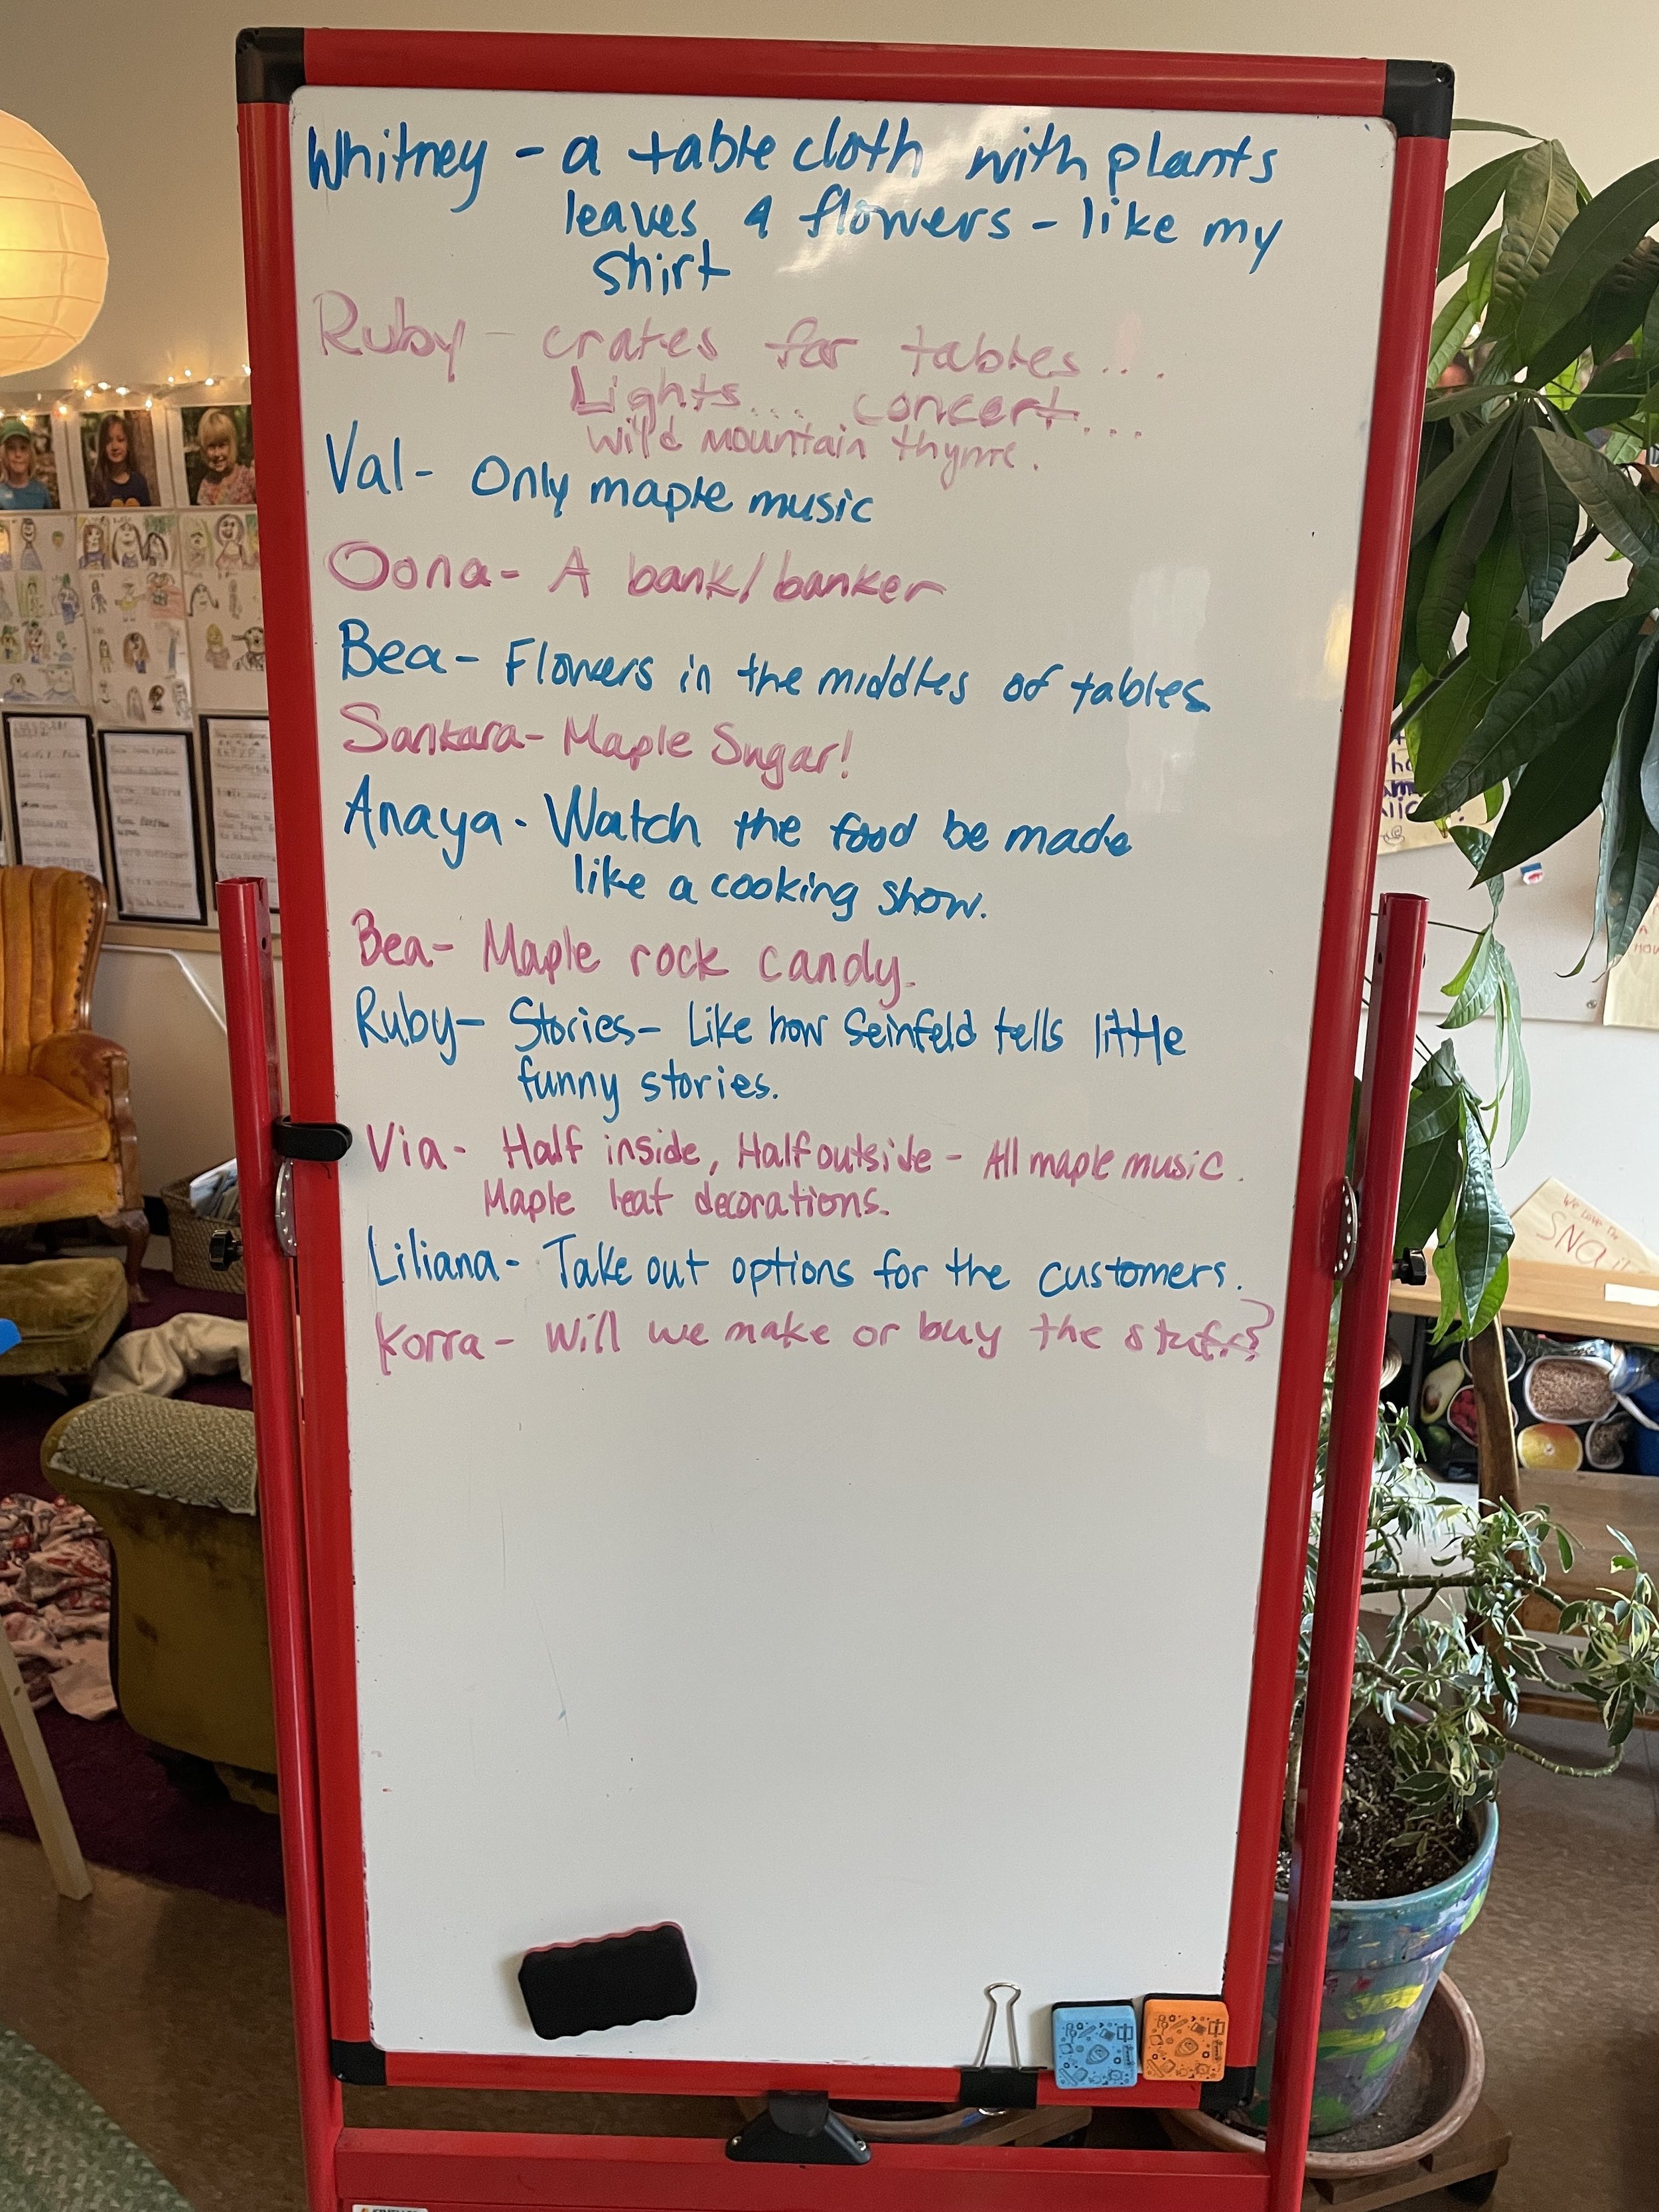 Whitney - a table cloth with plants
leaves & flowers - like my
shirt
Ruby - crates for tables...
Lights... concert...
Wild mountain thyme.
Val - Only maple music
Oona - A bank/banker
Bea - Flowers in the middles of tables
Sankara - Maple Sugar!
Anaya - Watch the food be made
like a cooking show.
Bea - Maple rock candy.
Ruby - Stories - Like how Seinfeld tells little
funny stories.
Via - Half inside, Half outside - All maple music.
Maple leaf decorations.
Liliana - Take out options for the customers.
Korra - Will we make or buy the stuff?